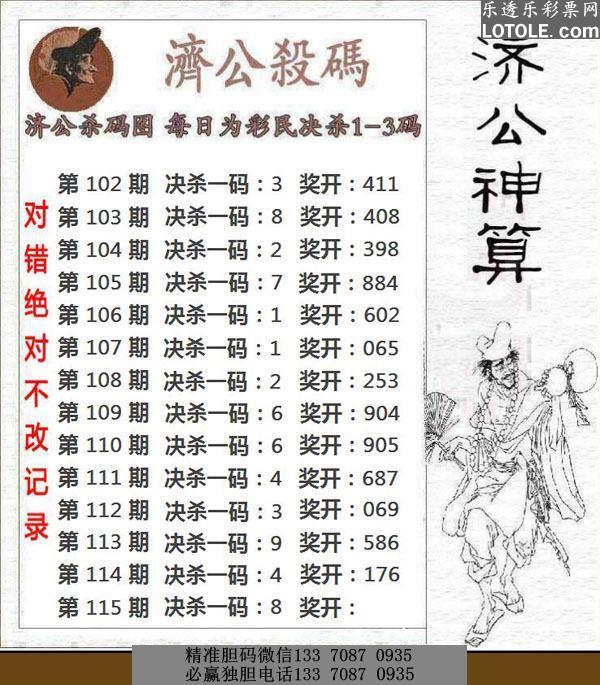 乐透乐彩票网
LOTOLE.COM
濟公殺碼
济公杀码图 每日为彩民决杀1-3码
济公神算
对错绝对不改记录
第 102 期 决杀一码：3 奖开：411
第 103 期 决杀一码：8 奖开：408
第 104 期 决杀一码：2 奖开：398
第 105 期 决杀一码：7 奖开：884
第 106 期 决杀一码：1 奖开：602
第 107 期 决杀一码：1 奖开：065
第 108 期 决杀一码：2 奖开：253
第 109 期 决杀一码：6 奖开：904
第 110 期 决杀一码：6 奖开：905
第 111 期 决杀一码：4 奖开：687
第 112 期 决杀一码：3 奖开：069
第 113 期 决杀一码：9 奖开：586
第 114 期 决杀一码：4 奖开：176
第 115 期 决杀一码：8 奖开：
精准胆码微信133 7087 0935
必赢独胆电话133 7087 0935